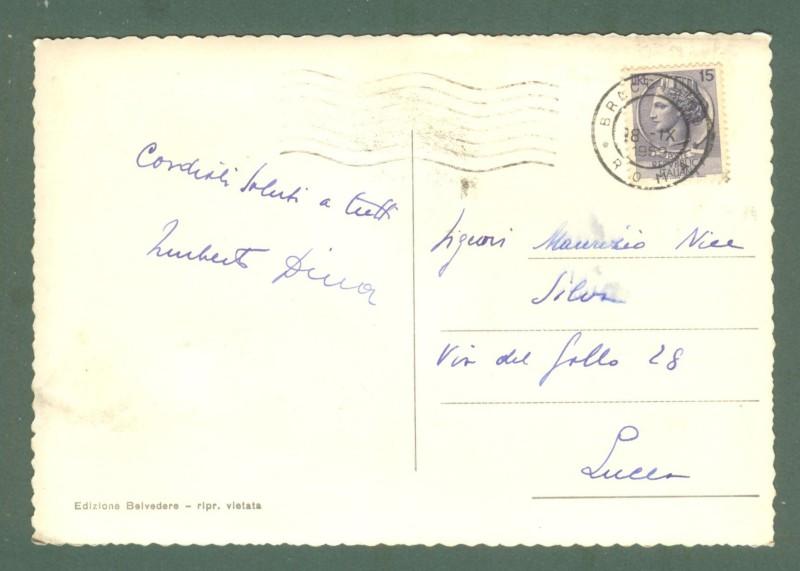 LIRE 15
BRAC
18 -IX
195
ROMA
ITALIANA
Cordiali saluti a tutti
Umberto Dina
Signori Maurizio Nice
Silva
Via del Gallo 28
Lucca
Edizione Belvedere - ripr. vietata